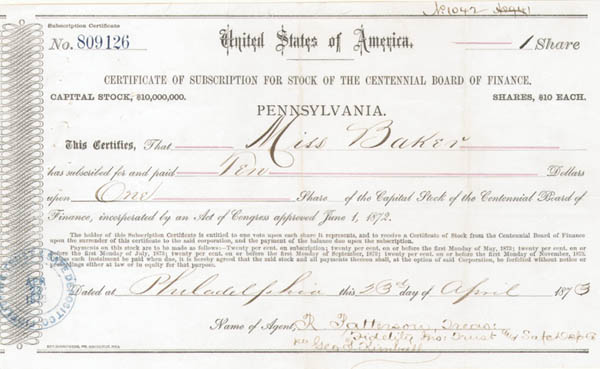 No 1042
Subscription Certificate
No. 809126
United States of America.
1 Share
CERTIFICATE OF SUBSCRIPTION FOR STOCK OF THE CENTENNIAL BOARD OF FINANCE.
CAPITAL STOCK, $10,000,000. SHARES, $10 EACH.
PENNSYLVANIA.
This Certifies, That Miss Baker
has subscribed for and paid Ten Dollars
upon One Share of the Capital Stock of the Centennial Board of
Finance, incorporated by an Act of Congress approved June 1, 1872.
The holder of this Subscription Certificate is entitled to one vote upon each share it represents, and to receive a Certificate of Stock from the Centennial Board of Finance
upon the surrender of this certificate to the said corporation, and the payment of the balance due upon the subscription.
Payments on this stock are to be made as follows:—Twenty per cent. on subscription; twenty per cent. on or before the first Monday of May, 1873; twenty per cent. on or
before the first Monday of July, 1873; twenty per cent. on or before the first Monday of September, 1873; twenty per cent. on or before the first Monday of November, 1873.
each instalment be paid when due, it is hereby agreed that said stock and all payments thereon shall, at the option of said Corporation, be forfeited without notice or
proceedings either at law or in equity for that purpose.
Dated at Philadelphia this 23rd day of April 1873
Name of Agent, R Patterson, Treas:
Fidelity Ins: Trust & Safe Dep Co